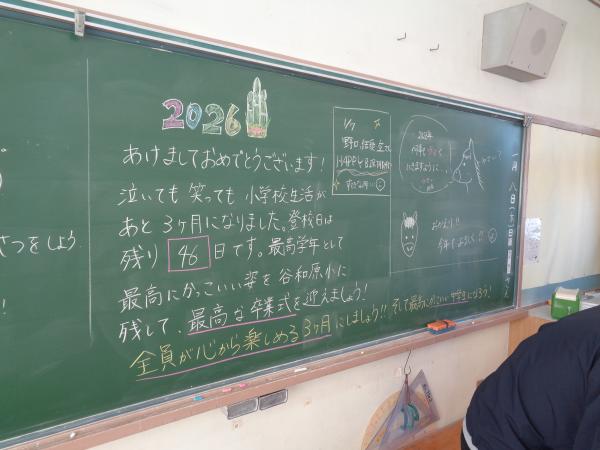 2026
あけましておめでとうございます！
泣いても笑っても小学校生活が
あと3ヶ月になりました。登校日は
残り 46 日です。最高学年として
最高にかっこいい姿を谷和原小に
残して、最高な卒業式を迎えましょう！
全員が心から楽しめる3ヶ月にしましょう!! そして最高にかっこいい中学生になろう！
さつをしよう
！
1/7
HAPPY BIRTHDAY
2026年
おかえり!!
今年もよろしく!!
一月八日(木)日直